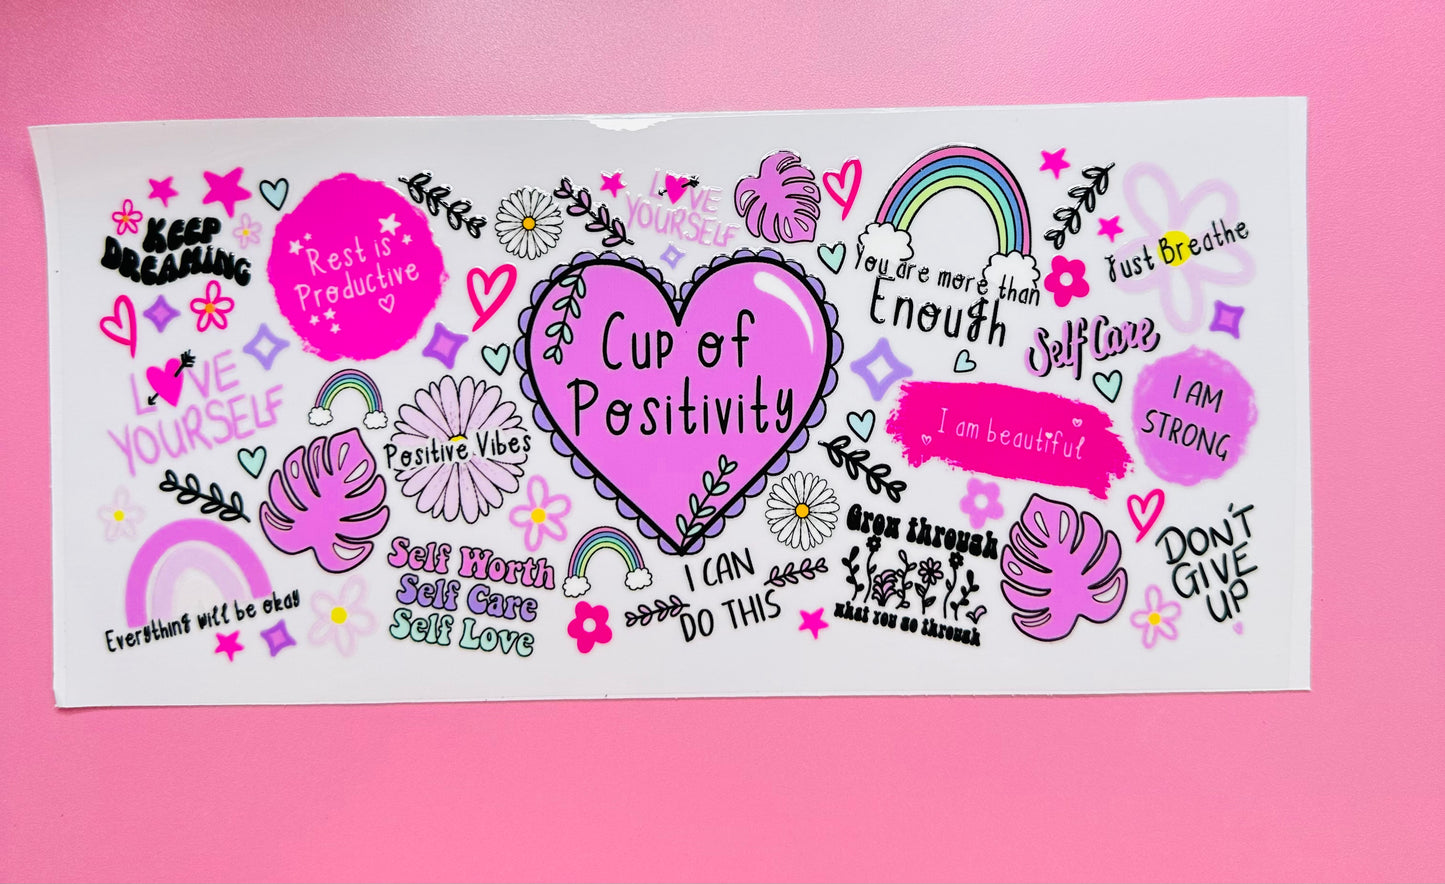 KEEP
DREAMING
Rest is
Productive
LOVE
YOURSELF
LOVE
YOURSELF
Positive Vibes
Cup of
Positivity
You are more than
Enough
Just Breathe
Self Care
I am beautiful
I AM
STRONG
Everything will be okay
Self Worth
Self Care
Self Love
I CAN
DO THIS
Grow through
what you go through
DON'T
GIVE
UP